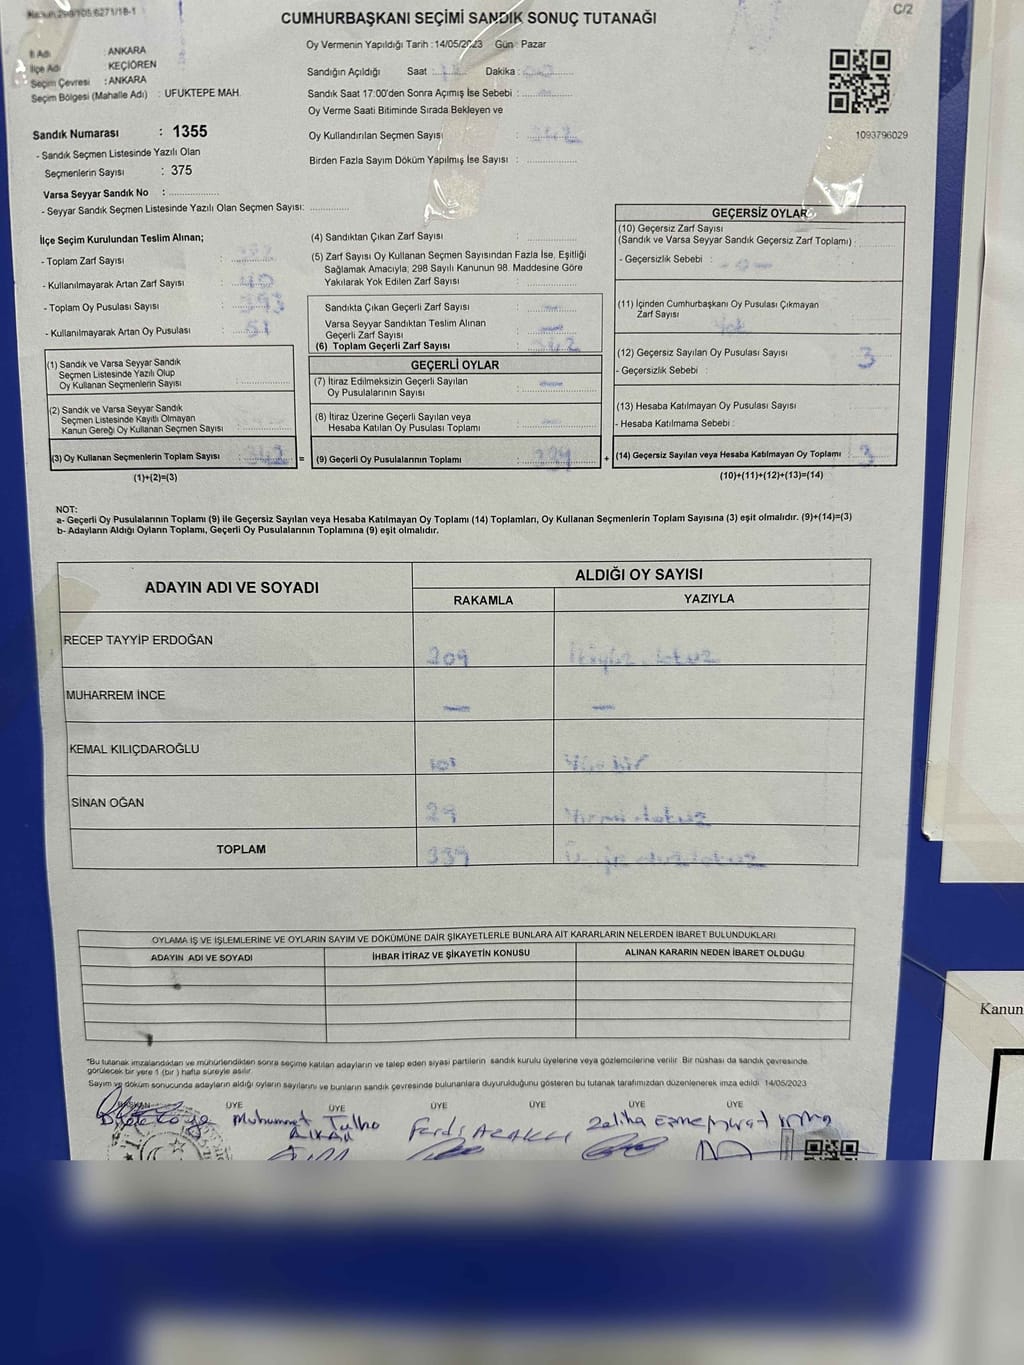 CUMHURBAŞKANI SEÇİMİ SANDIK SONUÇ TUTANAĞI
C/2
İl Adı : ANKARA
İlçe Adı : KEÇİÖREN
Seçim Çevresi : ANKARA
Seçim Bölgesi (Mahalle Adı) : UFUKTEPE MAH.
Oy Vermenin Yapıldığı Tarih : 14/05/2023 Gün : Pazar
Sandığın Açıldığı Saat : Dakika :
Sandık Saat 17:00'den Sonra Açımış İse Sebebi :
Oy Verme Saati Bitiminde Sırada Bekleyen ve
Oy Kullandırılan Seçmen Sayısı : 342
Birden Fazla Sayım Döküm Yapılmış İse Sayısı :
1093796029
Sandık Numarası : 1355
- Sandık Seçmen Listesinde Yazılı Olan
Seçmenlerin Sayısı : 375
Varsa Seyyar Sandık No :
- Seyyar Sandık Seçmen Listesinde Yazılı Olan Seçmen Sayısı:
İlçe Seçim Kurulundan Teslim Alınan;
- Toplam Zarf Sayısı :
- Kullanılmayarak Artan Zarf Sayısı : 40
- Toplam Oy Pusulası Sayısı : 393
- Kullanılmayarak Artan Oy Pusulası : 51
(1) Sandık ve Varsa Seyyar Sandık
Seçmen Listesinde Yazılı Olup
Oy Kullanan Seçmenlerin Sayısı :
(2) Sandık ve Varsa Seyyar Sandık
Seçmen Listesinde Kayıtlı Olmayan
Kanun Gereği Oy Kullanan Seçmen Sayısı :
(3) Oy Kullanan Seçmenlerin Toplam Sayısı : 342 =
(1)+(2)=(3)
(4) Sandıktan Çıkan Zarf Sayısı :
(5) Zarf Sayısı Oy Kullanan Seçmen Sayısından Fazla İse, Eşitliği
Sağlamak Amacıyla, 298 Sayılı Kanunun 98. Maddesine Göre
Yakılarak Yok Edilen Zarf Sayısı :
Sandıkta Çıkan Geçerli Zarf Sayısı : —
Varsa Seyyar Sandıktan Teslim Alınan
Geçerli Zarf Sayısı : —
(6) Toplam Geçerli Zarf Sayısı : 342
GEÇERLİ OYLAR
(7) İtiraz Edilmeksizin Geçerli Sayılan
Oy Pusulalarının Sayısı : —
(8) İtiraz Üzerine Geçerli Sayılan veya
Hesaba Katılan Oy Pusulası Toplamı : —
(9) Geçerli Oy Pusulalarının Toplamı : 339 +
GEÇERSİZ OYLAR
(10) Geçersiz Zarf Sayısı
(Sandık ve Varsa Seyyar Sandık Geçersiz Zarf Toplamı) :
- Geçersizlik Sebebi : - 0 -
(11) İçinden Cumhurbaşkanı Oy Pusulası Çıkmayan
Zarf Sayısı : Yok
(12) Geçersiz Sayılan Oy Pusulası Sayısı : 3
- Geçersizlik Sebebi :
(13) Hesaba Katılmayan Oy Pusulası Sayısı
- Hesaba Katılmama Sebebi :
(14) Geçersiz Sayılan veya Hesaba Katılmayan Oy Toplamı : 3
(10)+(11)+(12)+(13)=(14)
NOT:
a- Geçerli Oy Pusulalarının Toplamı (9) ile Geçersiz Sayılan veya Hesaba Katılmayan Oy Toplamı (14) Toplamları, Oy Kullanan Seçmenlerin Toplam Sayısına (3) eşit olmalıdır. (9)+(14)=(3)
b- Adayların Aldığı Oyların Toplamı, Geçerli Oy Pusulalarının Toplamına (9) eşit olmalıdır.
ADAYIN ADI VE SOYADI
ALDIĞI OY SAYISI
RAKAMLA YAZIYLA
RECEP TAYYİP ERDOĞAN 209 ikiyüz dokuz
MUHARREM İNCE — —
KEMAL KILIÇDAROĞLU 101 Yüz bir
SİNAN OĞAN 29 Yirmi dokuz
TOPLAM 339 Üçyüz otuzdokuz
OYLAMA İŞ VE İŞLEMLERİNE VE OYLARIN SAYIM VE DÖKÜMÜNE DAİR ŞİKAYETLERLE BUNLARA AİT KARARLARIN NELERDEN İBARET BULUNDUKLARI
ADAYIN ADI VE SOYADI İHBAR İTİRAZ VE ŞİKAYETİN KONUSU ALINAN KARARIN NEDEN İBARET OLDUĞU
*Bu tutanak imzalandıktan ve mühürlendikten sonra seçime katılan adayların ve talep eden siyasi partilerin sandık kurulu üyelerine veya gözlemcilerine verilir. Bir nüshası da sandık çevresinde
görülecek bir yere 1 (bir) hafta süreyle asılır.
Sayım ve döküm sonucunda adayların aldığı oyların sayılarını ve bunların sandık çevresinde bulunanlara duyurulduğunu gösteren bu tutanak tarafımızdan düzenlenerek imza edildi. 14/05/2023
BAŞKAN ÜYE ÜYE ÜYE ÜYE ÜYE ÜYE
Muhammet Talha
Zeliha
Kanun